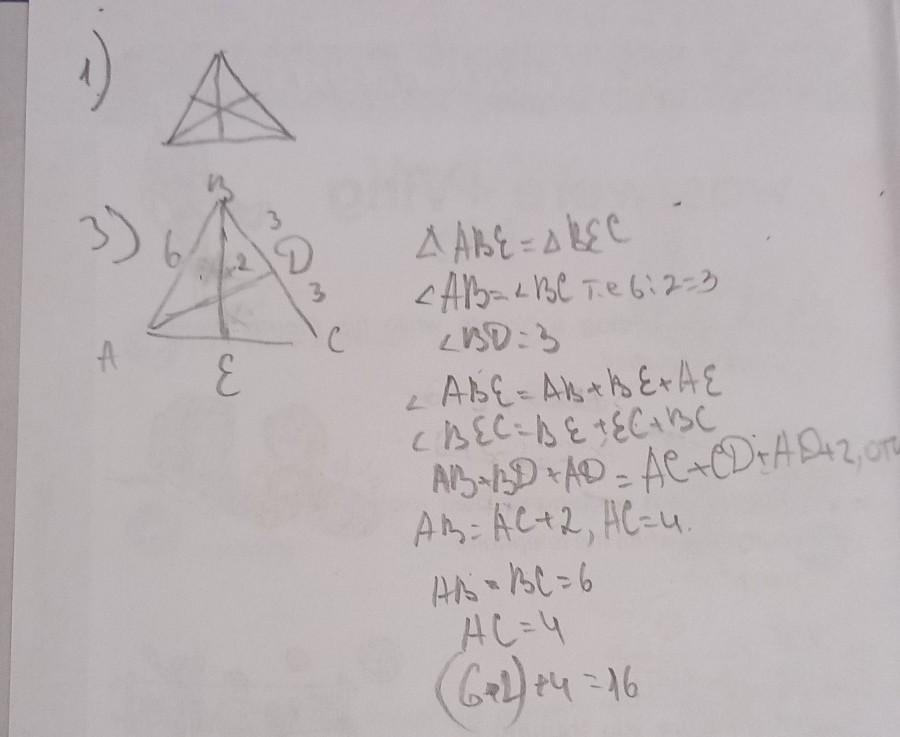 1)
3)
B
6
3
2
D
3
A
C
E
△ ABE = △ BEC
∠AB = ∠BC т.е 6:2=3
∠BD = 3
∠ ABE = AB + BE + AE
∠ BEC = BE + EC + BC
AB + BD + AD = AC + CD + AD + 2,
AB = AC + 2, AC = 4.
AB = BC = 6
AC = 4
+4 = 16